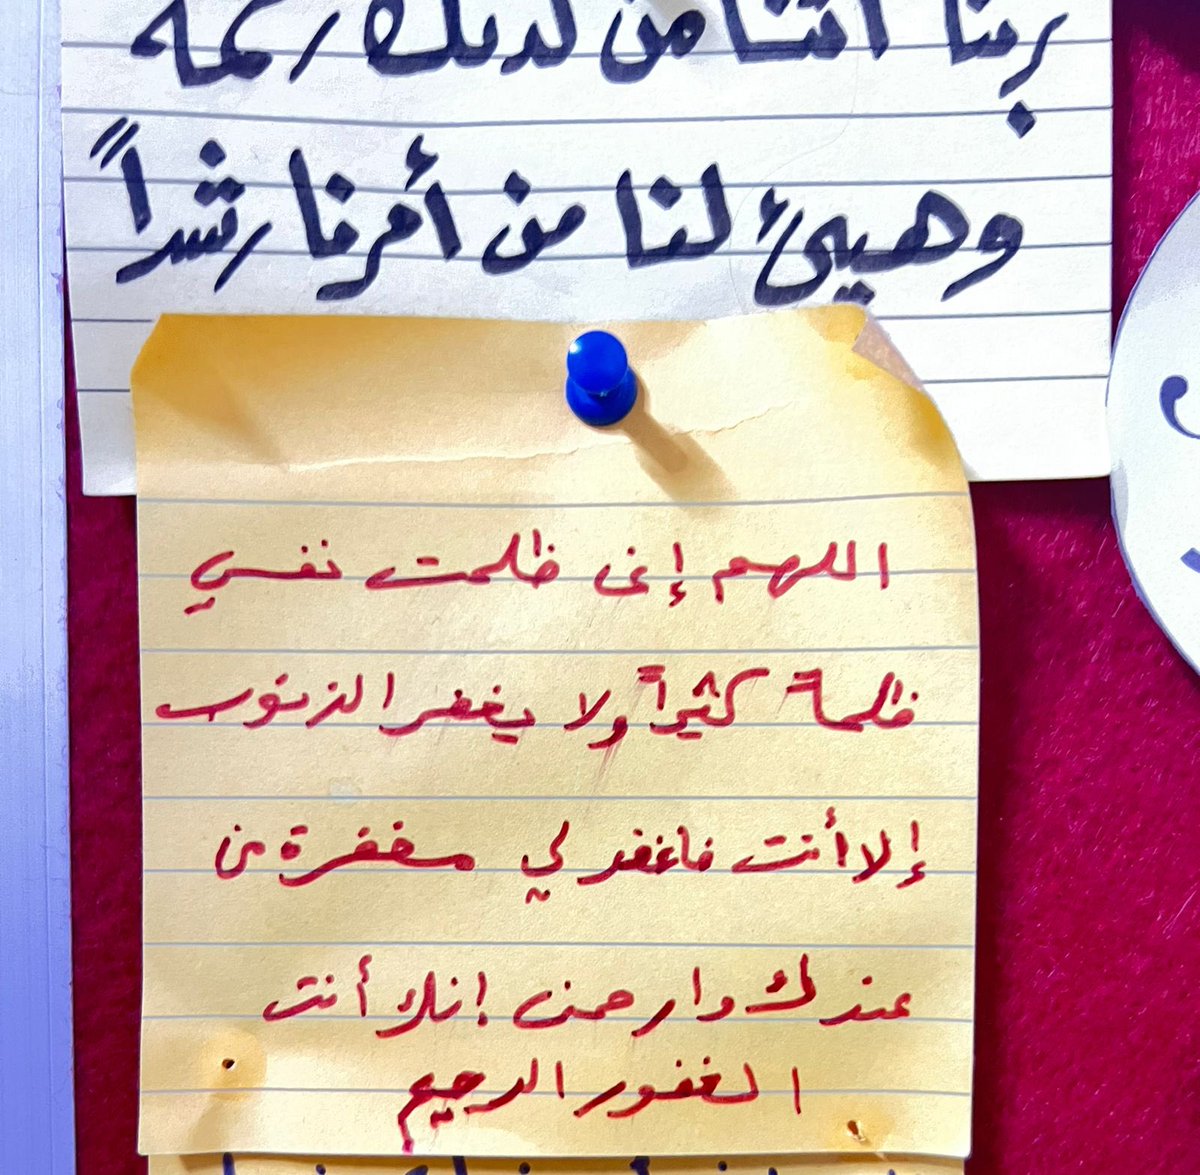 ربنا آتنا من لدنك رحمة
وهيئ لنا من أمرنا رشداً
اللهم إنى ظلمت نفسي
ظلماً كثيراً ولا يغفر الذنوب
إلا أنت فاغفر لي مغفرة من
عندك وارحمنى إنك أنت
الغفور الرحيم